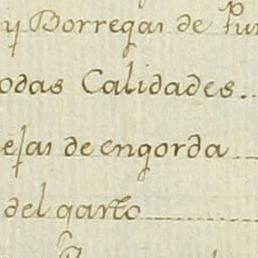 y Borregas de
odas Calidades..
ejas de engorda
del garto